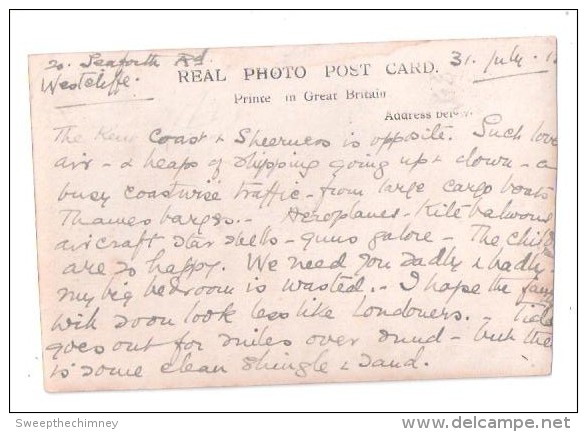 20. Seaforth Rd. 31. July. 1
Westcliffe.
REAL PHOTO POST CARD.
Printe in Great Britain
Address Below
The Kent Coast & Sheerness is opposite. Such love
air - & heaps of shipping going up & down - a
busy coastwise traffic - from large cargo boats
Thames barges. - Aeroplanes - Kite balloons
aircraft star shells - guns galore - The child
are so happy. We need you sadly & badly -
my big bedroom is wasted. - I hope the family
will soon look less like Londoners. - Tide
goes out for miles over mud - but the
is some clean shingle & sand.
Sweepthechimney
delcampe.net